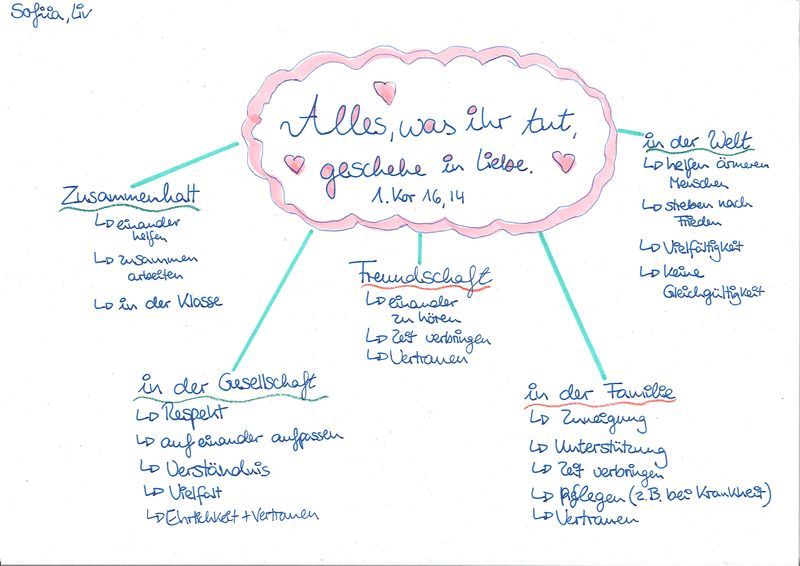 Sofiia, Liv
Alles, was ihr tut,
geschehe in Liebe.
1. Kor 16,14
Zusammenhalt
↳ einander
helfen
↳ zusammen
arbeiten
↳ in der Klasse
in der Gesellschaft
↳ Respekt
↳ auf einander aufpassen
↳ Verständnis
↳ Vielfalt
↳ Ehrlichkeit + Vertrauen
Freundschaft
↳ einander
zu hören
↳ Zeit verbringen
↳ Vertrauen
in der Familie
↳ Zuneigung
↳ Unterstützung
↳ Zeit verbringen
↳ Pflegen (z.B. bei Krankheit)
↳ Vertrauen
in der Welt
↳ helfen ärmeren
Menschen
↳ streben nach
Frieden
↳ Vielfältigkeit
↳ keine
Gleichgültigkeit